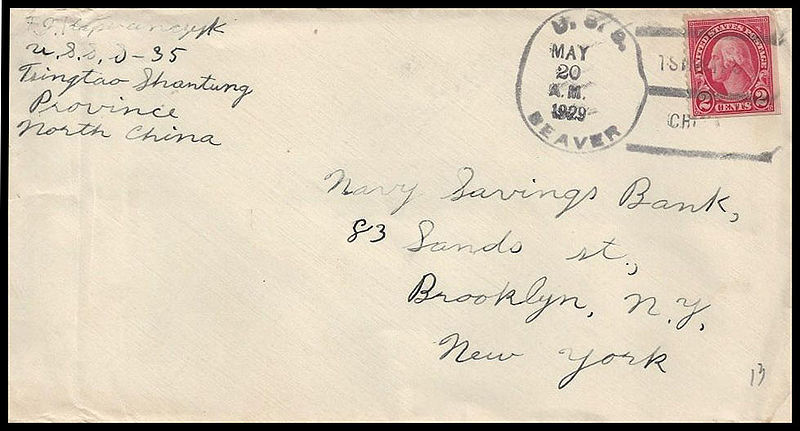 U.S.S. S-35
Tsingtao Shantung
Province
North China
U.S.S.
MAY
20
A.M.
1929
BEAVER
CH
UNITED STATES POSTAGE
2 CENTS 2
Navy Savings Bank,
83 Sands st.,
Brooklyn, N.Y.,
New York
13